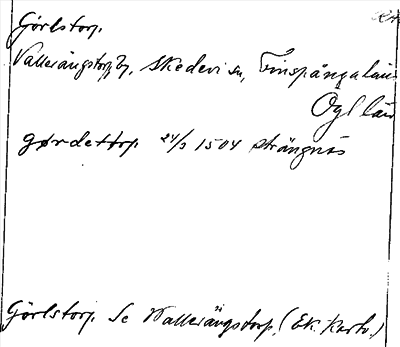 Görlstorp.
Vallersängstorp, Skedevi sn, Finspånga län
Ögl län
gørdettorp 24/3 1504 strängnäs
Görlstorp. Se Vallersängstorp. (Ek. Karto.)